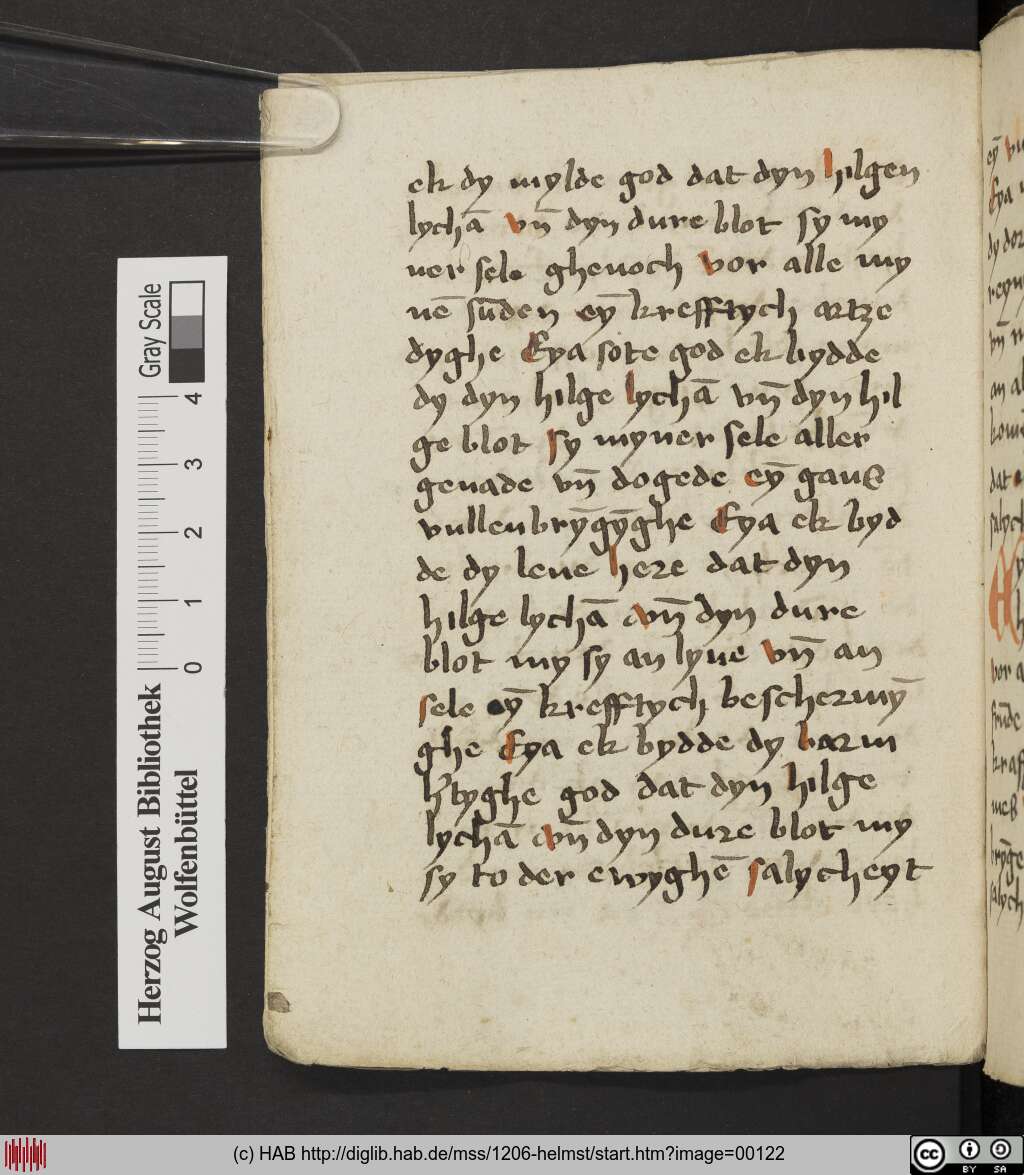 ek dy mylde god dat dyn hilgen
lychā vn̄ dyn dure blot sy my
ner sele ghenoch vor alle my
nē su̅den ey̅ krefftych artze
dyghe Eya sote god ek bydde
dy dyn hilge lychā vn̄ dyn hil
ge blot sy myner sele aller
genade vn̄ dogede ey̅ gantz
vullenbry̅gy̅ghe Eya ek byd
de dy leue here dat dyn
hilge lychā vn̄ dyn dure
blot my sy an lyue vn̄ an
sele ey̅ krefftych beschermy̅
ghe Eya ek bydde dy barm
h'tyghe god dat dyn hilge
lychā vn̄ dyn dure blot my
sy to der ewyghē salycheyt
Gray Scale
0 1 2 3 4
Herzog August Bibliothek
Wolfenbüttel
ey̅
Eya
dy
vn̄
an
dat
salych
vor
salych
(c) HAB http://diglib.hab.de/mss/1206-helmst/start.htm?image=00122
cc BY SA